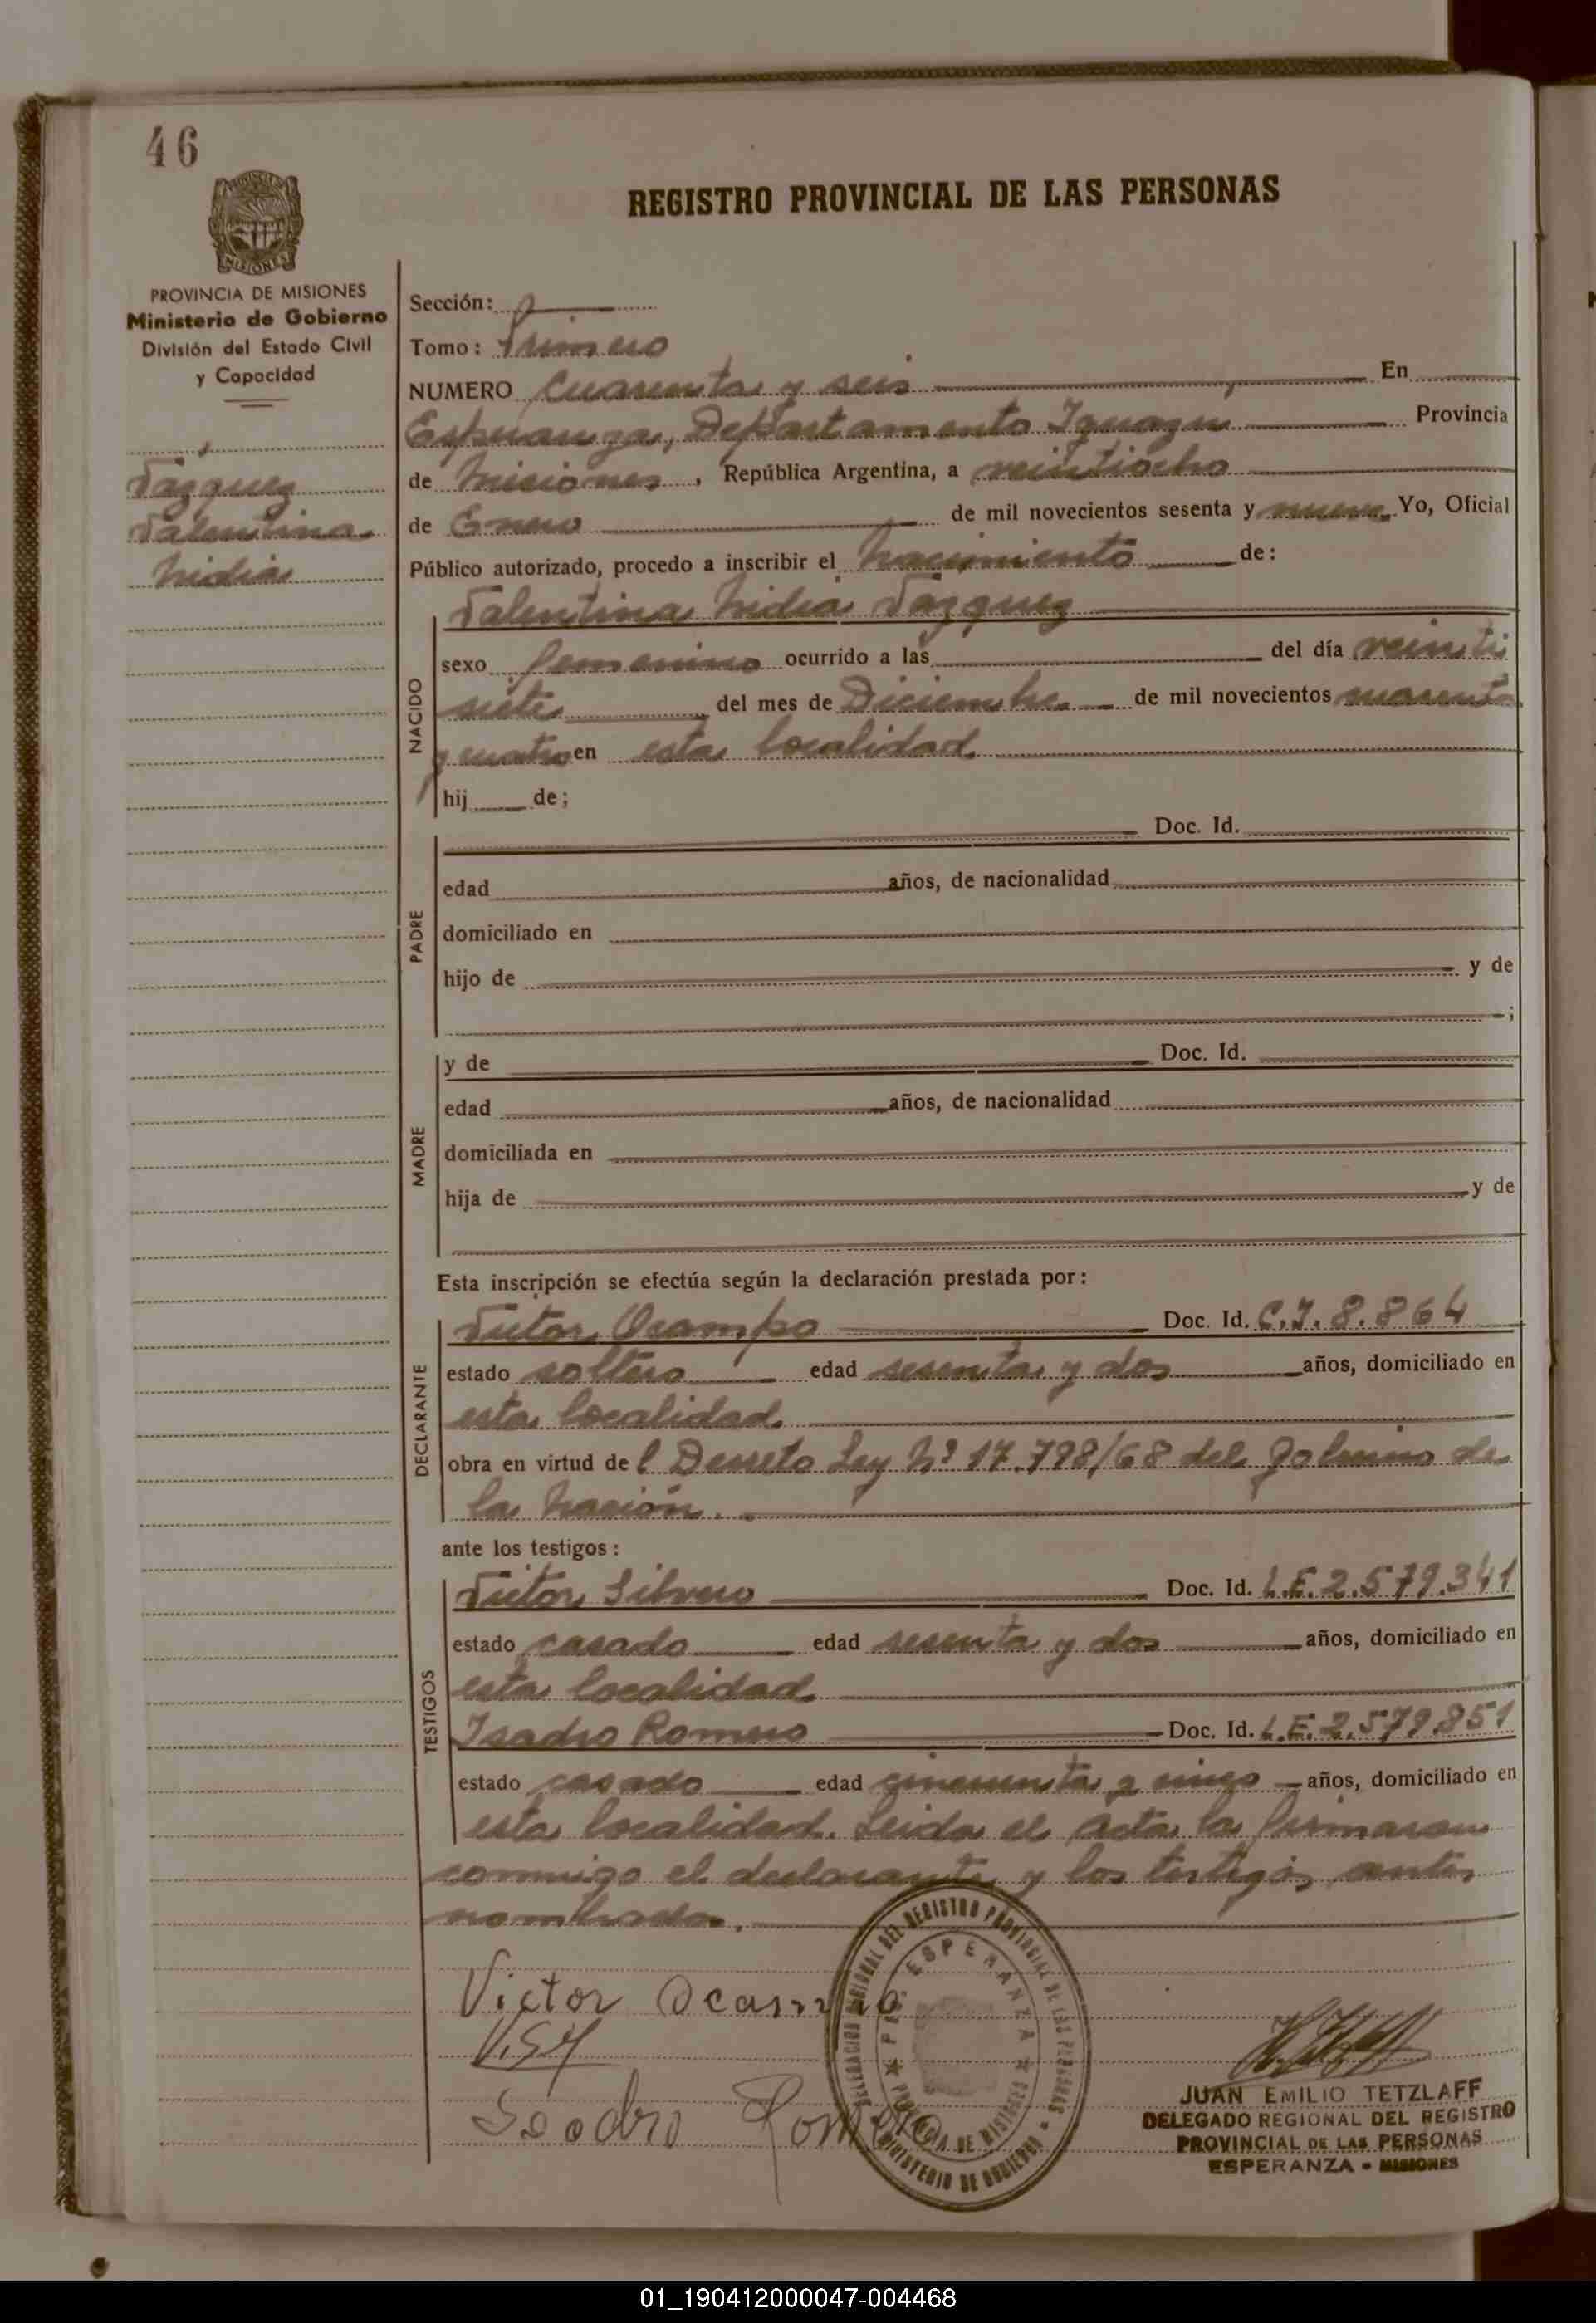 46
REGISTRO PROVINCIAL DE LAS PERSONAS
MISIONES
PROVINCIA DE MISIONES
Ministerio de Gobierno
División del Estado Civil
y Capacidad
Vazquez
Valentina
Nidia
Sección:
Tomo: Primero
NUMERO Cuarenta y seis En
Esperanza, Departamento Iguazu Provincia
de Misiones, República Argentina, a veintiocho
de Enero de mil novecientos sesenta y nueve. Yo, Oficial
Público autorizado, procedo a inscribir el Nacimiento de:
NACIDO
Valentina Nidia Vazquez
sexo femenino ocurrido a las del día veinti
siete del mes de Diciembre de mil novecientos cuarenta
y cuatro en esta localidad
hij de;
PADRE
Doc. Id.
edad años, de nacionalidad
domiciliado en
hijo de y de
;
MADRE
y de Doc. Id.
edad años, de nacionalidad
domiciliada en
hija de y de
Esta inscripción se efectúa según la declaración prestada por:
DECLARANTE
Victor Ocampo Doc. Id. C.I. 8.864
estado soltero edad sesenta y dos años, domiciliado en
esta localidad.
obra en virtud de l Decreto Ley Nº 17.798/68 del Gobierno de
la Nación.
ante los testigos:
TESTIGOS
Victor Silvero Doc. Id. L.E. 2.579.341
estado casado edad sesenta y dos años, domiciliado en
esta localidad.
Isadro Romero Doc. Id. L.E. 2.579.851
estado casado edad cincuenta y cinco años, domiciliado en
esta localidad. Leida el acta la firmaron
conmigo el declarante y los testigos antes
nombrados.
Victor Ocampo
Isodro Romero
DELEGACION REGIONAL DEL REGISTRO PROVINCIAL DE LAS PERSONAS
ESPERANZA
PROVINCIA DE MISIONES
MINISTERIO DE GOBIERNO
JUAN EMILIO TETZLAFF
DELEGADO REGIONAL DEL REGISTRO
PROVINCIAL DE LAS PERSONAS
ESPERANZA - MISIONES
01_190412000047-004468